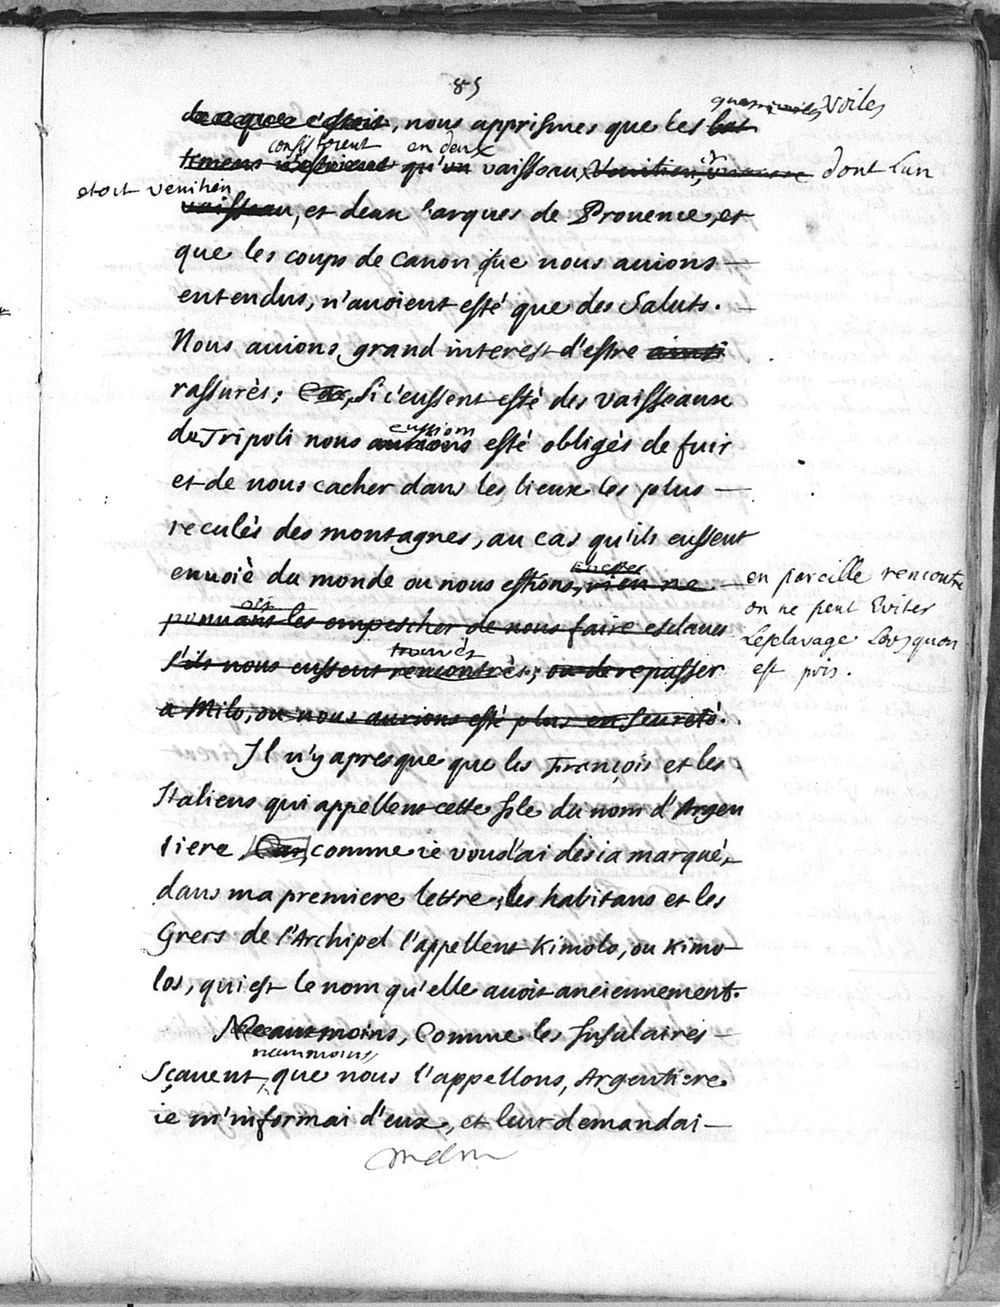 85
de ce que c'estoit, nous apprismes que les bas voiles
timens consistoient en deux qu'un vaisseaux Venitien, dont l'un
etoit venitien
vaisseau, et deux barques de Provence, et
que les coups de canon que nous auions
entendus, n'auoient esté que des Saluts.
Nous auions grand interest d'estre ainsi
rassurés; Car, Si c'eussent esté des vaisseaux
eussions
de Tripoli nous aurions esté obligés de fuir
et de nous cacher dans les lieux les plus
reculés des montagnes, au cas qu'ils eussent
enuoié du monde ou nous estions, rien ne
en pareille rencontre
on ne peut Eviter
L'esclavage Lorsquon
est pris.
les empescher de nous faire esclaves
trouvés
S'ils nous eussent rencontrés; ou de repasser
a Milo, ou nous aurions esté plus en seureté.
Il n'y a presque que les François et les
Italiens qui appellent cette Isle du nom d'Argen
tiere Car, comme ie vous l'ai desia marqué,
dans ma premiere lettre, les habitans et les
Grecs de l'Archipel l'appellent Kimolo, ou Kimo
los, qui est le nom qu'elle auoit anciennement.
Neantmoins, Comme les Insulaires
neammoins
Sçauent, que nous l'appellons, Argentiere
ie m'informai d'eux, et leur demandai